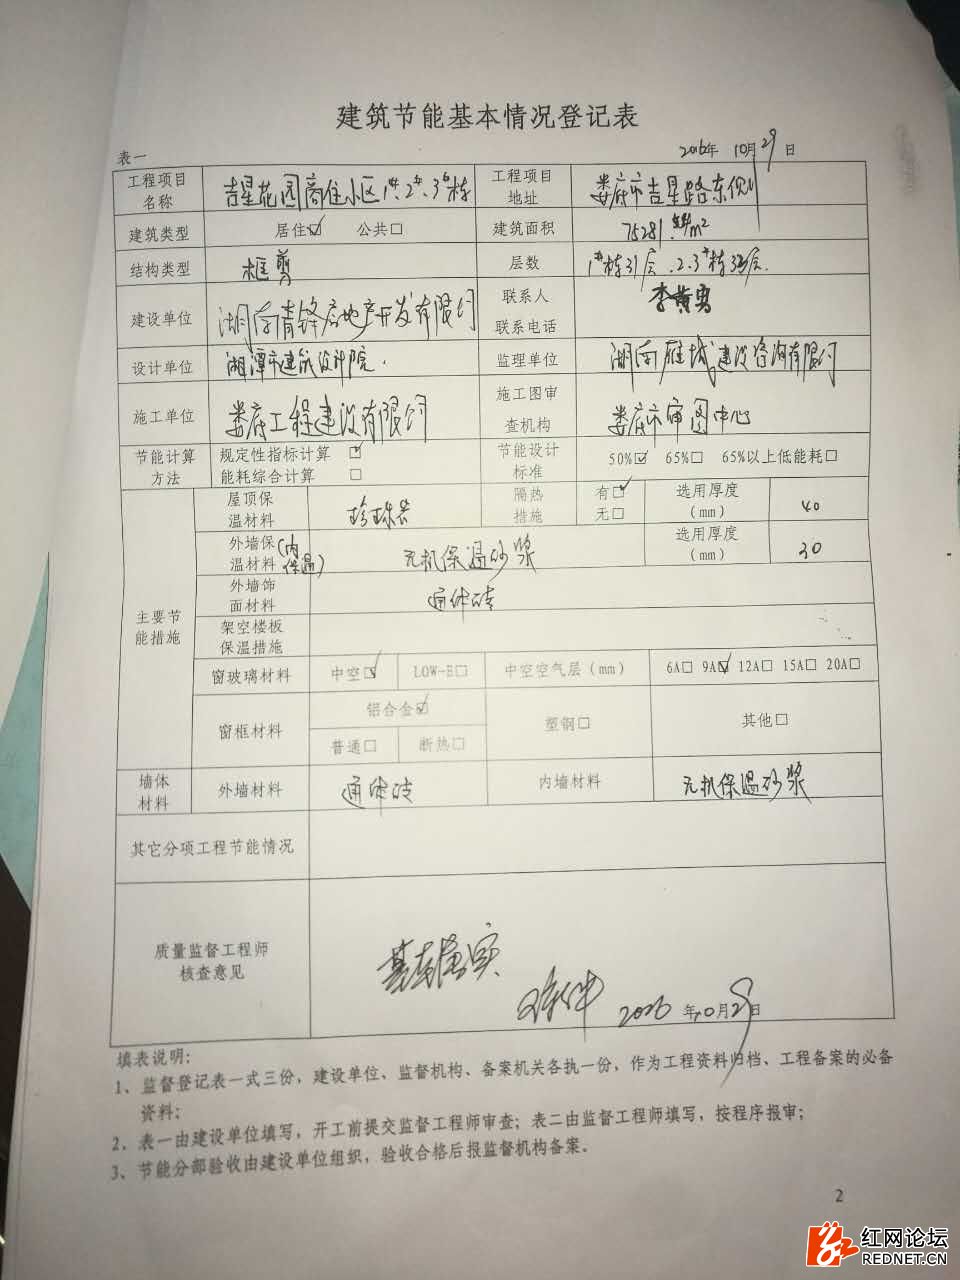 建筑节能基本情况登记表
表一
2016年 10月29日
工程项目名称 吉星花园商住小区1#、2#、3#栋 工程项目地址 娄底市吉星路东侧
建筑类型 居住☑ 公共□ 建筑面积 75281 m²
结构类型 框剪 层数 1#栋31层、2、3#栋33层
建设单位 湖南青锋房地产开发有限公司 联系人 李黄勇
联系电话
设计单位 湘潭市建筑设计院 监理单位 湖南雁城建设咨询有限公司
施工单位 娄底工程建设有限公司 施工图审查机构 娄底市审图中心
节能计算方法 规定性指标计算 ☑ 节能设计标准 50%☑ 65%□ 65%以上低能耗□
能耗综合计算 □
主要节能措施
屋顶保温材料 珍珠岩 隔热措施 有☑ 无□ 选用厚度(mm) 40
外墙保温材料 (内保温) 无机保温砂浆 选用厚度(mm) 30
外墙饰面材料 通体砖
架空楼板保温措施
窗玻璃材料 中空☑ LOW-E□ 中空空气层(mm) 6A□ 9A☑ 12A□ 15A□ 20A□
窗框材料 铝合金☑ 塑钢□ 其他□
普通□ 断热□
墙体材料 外墙材料 通体砖 内墙材料 无机保温砂浆
其它分项工程节能情况
质量监督工程师核查意见
基本属实
2016年10月29日
填表说明:
1、监督登记表一式三份，建设单位、监督机构、备案机关各执一份，作为工程资料归档、工程备案的必备
资料;
2、表一由建设单位填写，开工前提交监督工程师审查；表二由监督工程师填写，按程序报审；
3、节能分部验收由建设单位组织，验收合格后报监督机构备案。
2
红网论坛
REDNET.CN